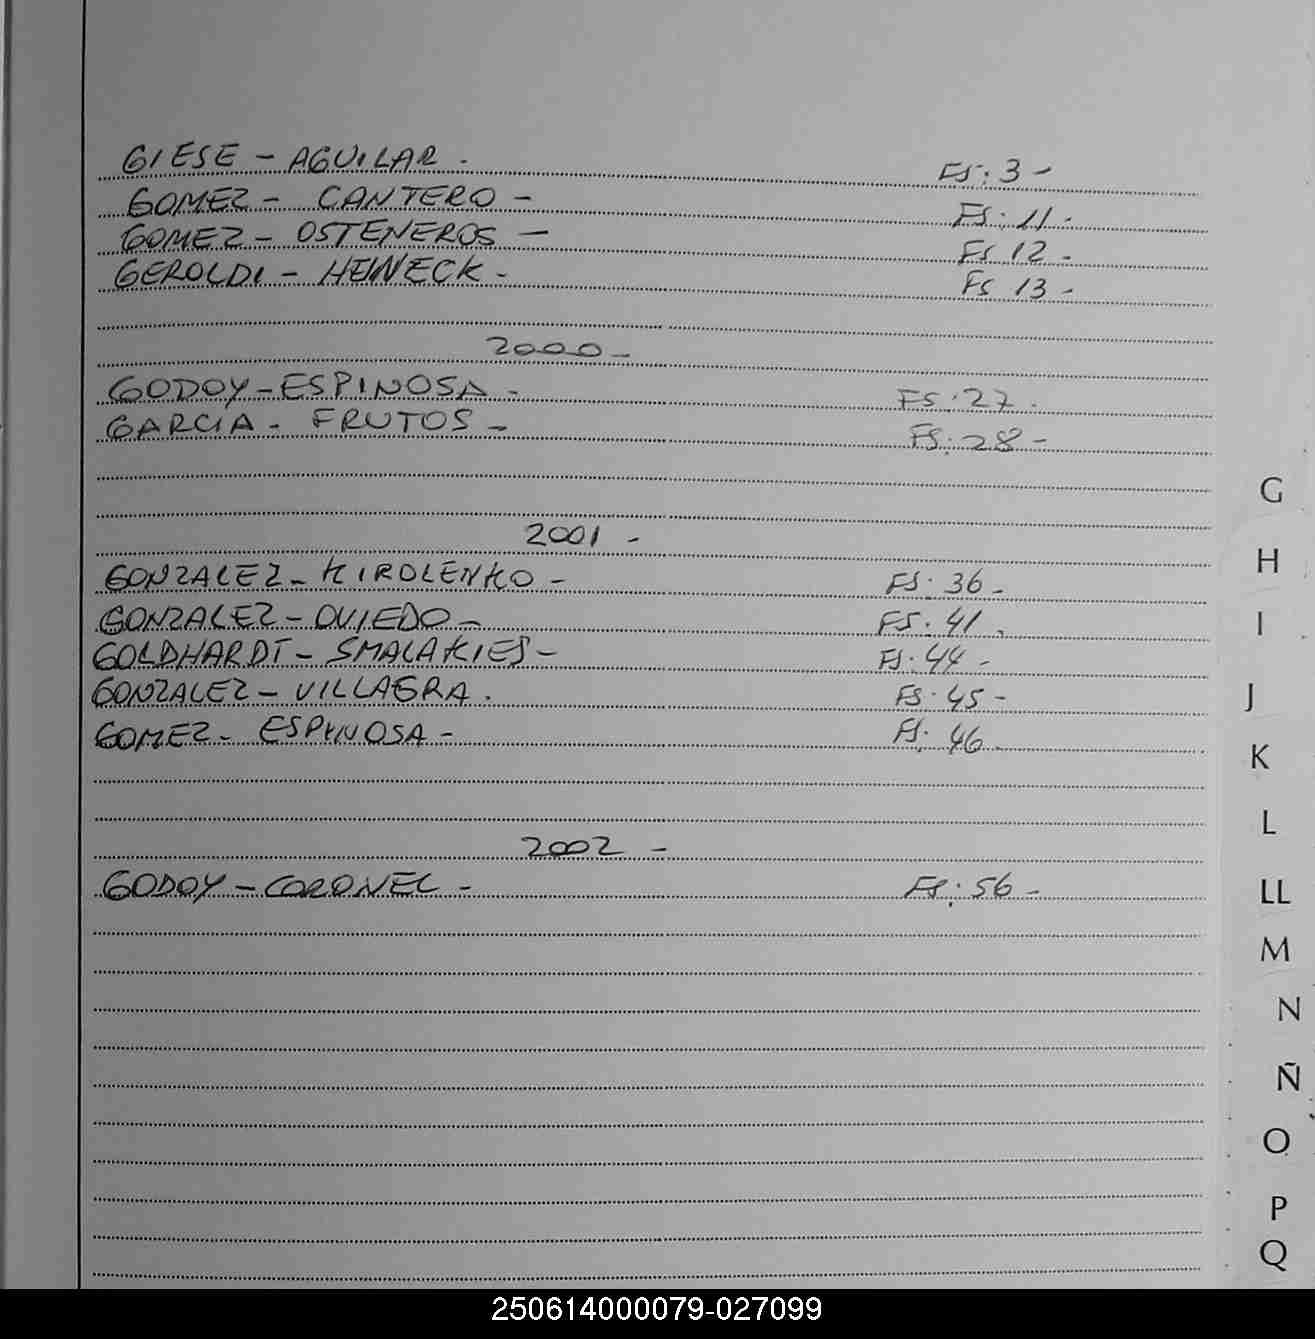 GIESE - AGUILAR . FS: 3 -
GOMEZ - CANTERO - FS: 11 -
GOMEZ - OSTENEROS - FS 12 -
GEROLDI - HEINECK - FS 13 -
2000 -
GODOY - ESPINOSA - FS: 27 .
GARCIA - FRUTOS - FS: 28 -
2001 -
GONZALEZ - KIROLENKO - FS: 36 -
GONZALEZ - OVIEDO - FS: 41 .
GOLDHARDT - SMALAKIES - FS: 44 -
GONZALEZ - VILLAGRA . FS: 45 -
GOMEZ - ESPINOSA - FS: 46
2002 -
GODOY - CORONEL - FS: 56 -
G
H
I
J
K
L
LL
M
N
Ñ
O
P
Q
250614000079-027099